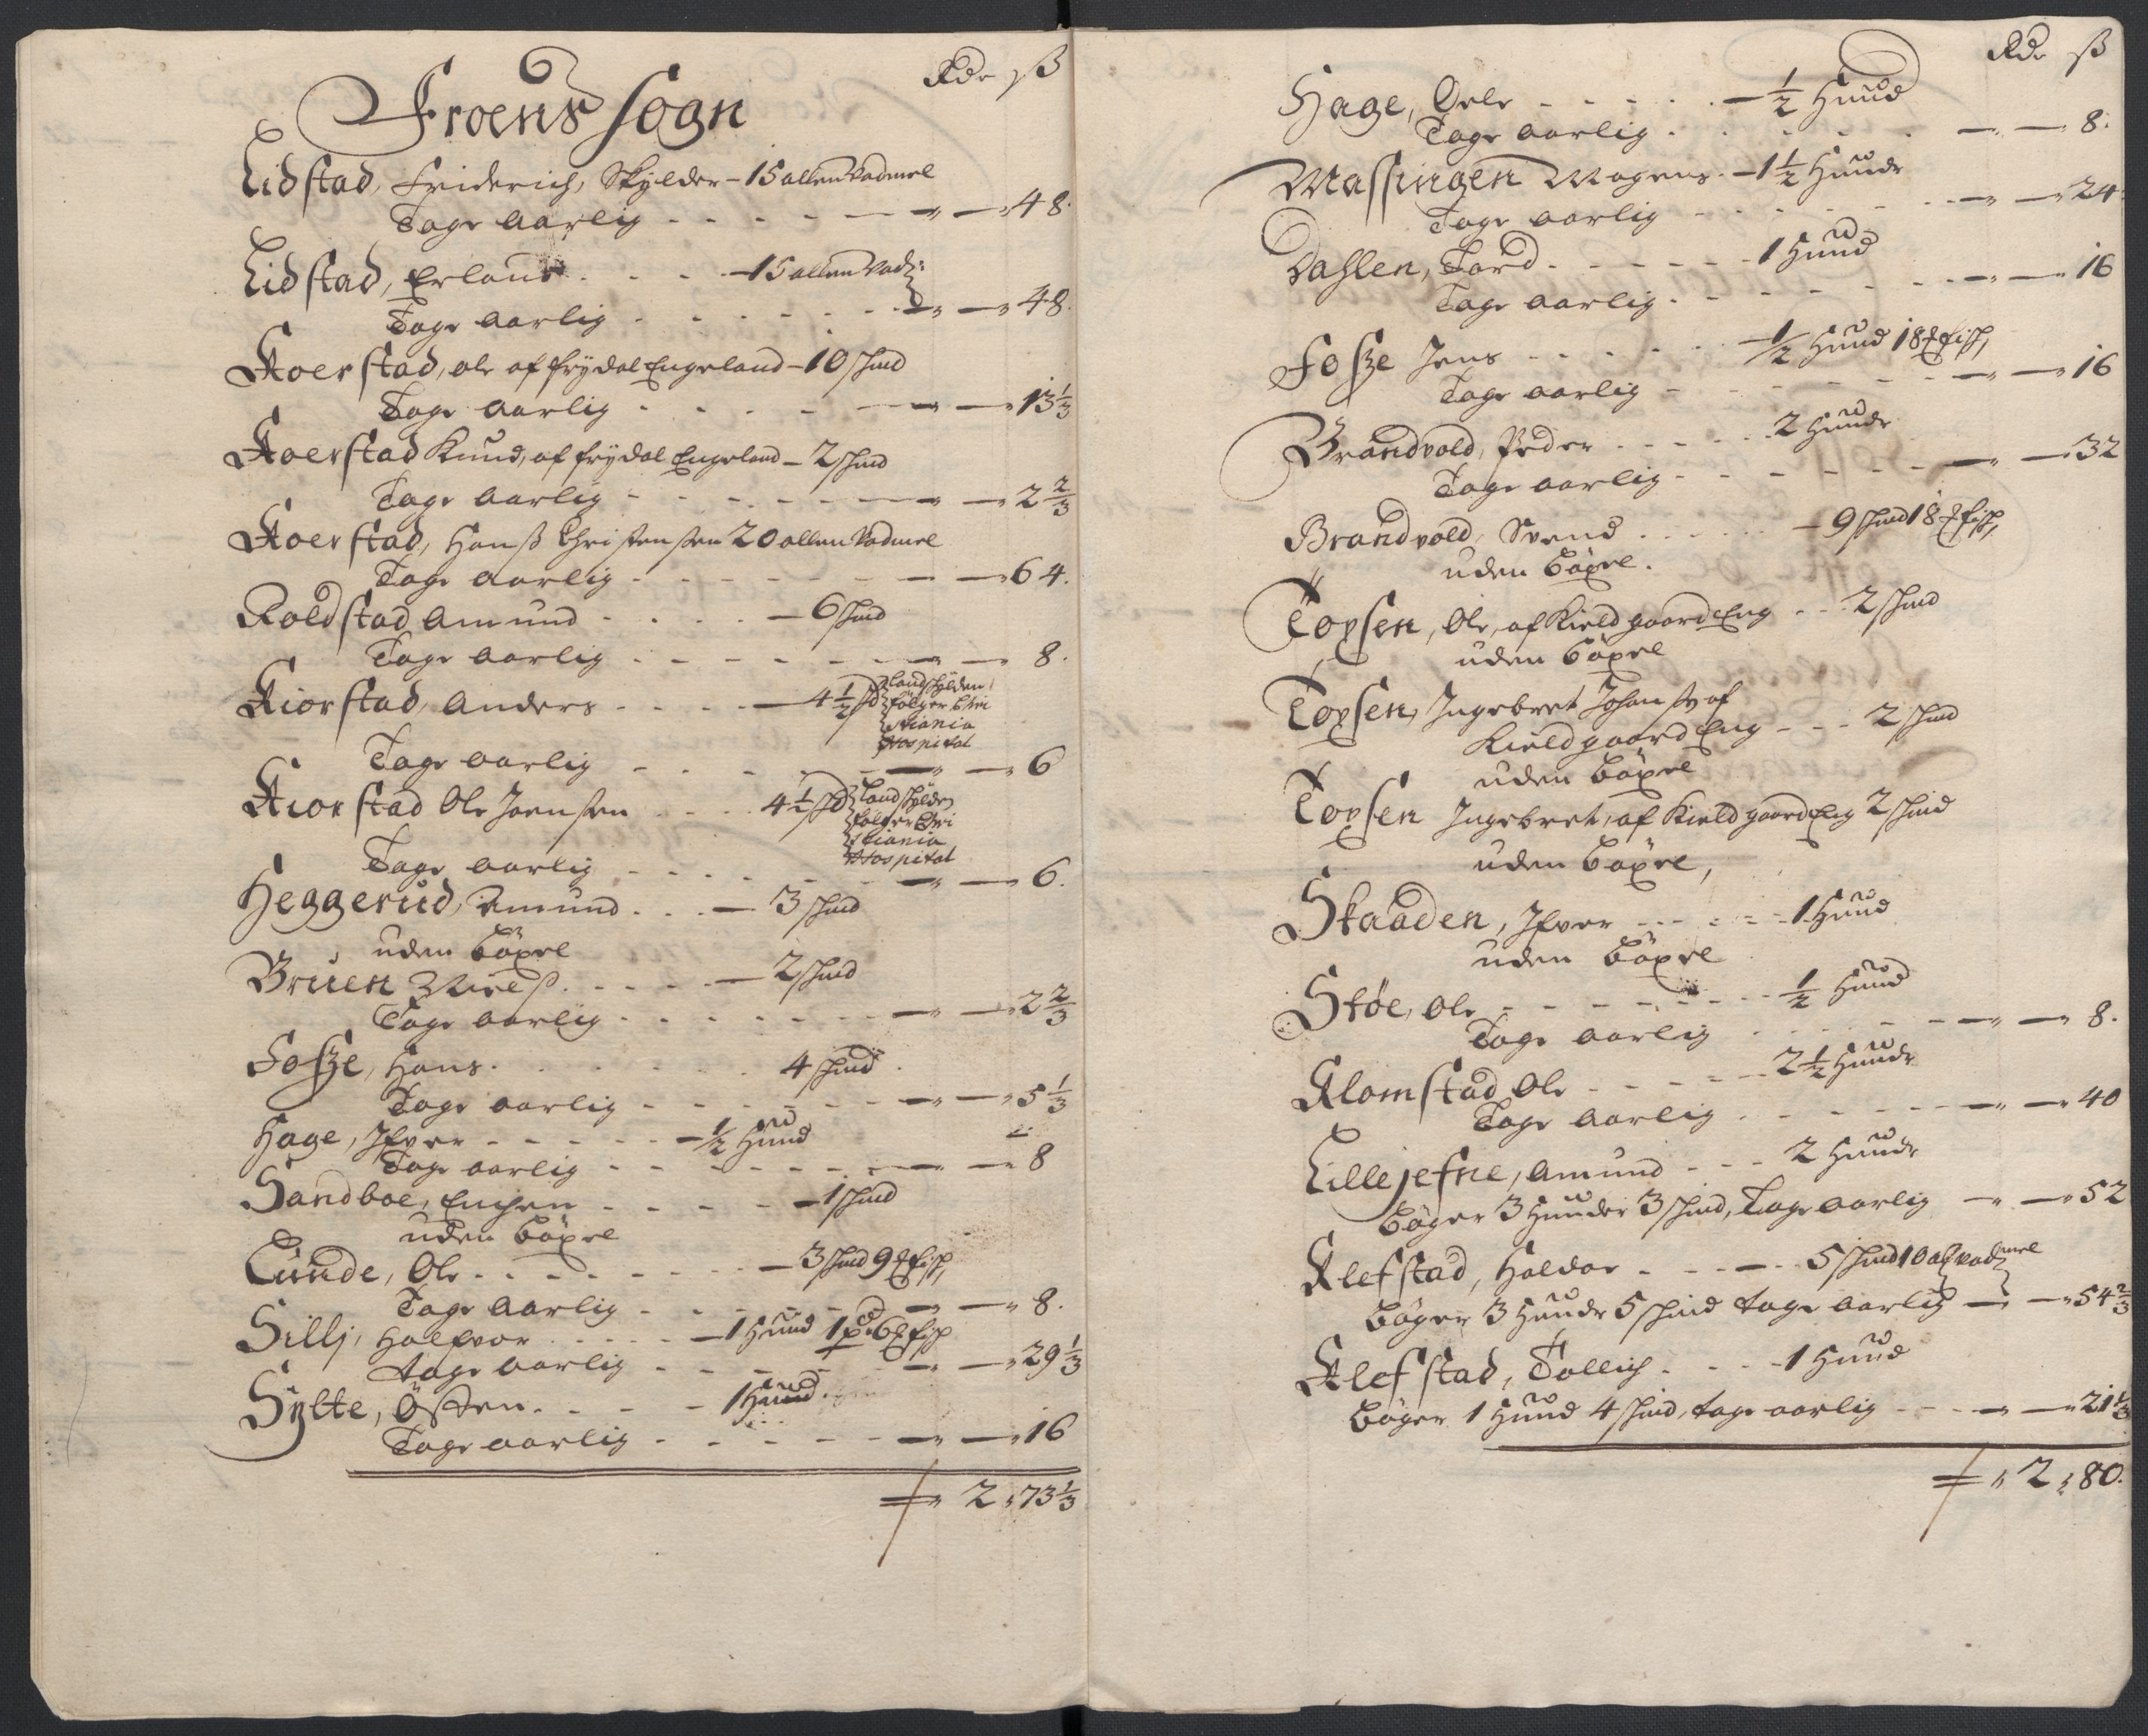 Rdr ß
Froens Sogn
Lidstad, Friderich, Skylder - 15 allen Vadmel
Tage aarlig - - - - 48.
Lidstad, Erland - - - 15 allen Vad:
Tage aarlig - - - - 48.
Koerstad, Ole af frydal Engeland - 10 skind
Tage aarlig - - - - 13 1/3
Koerstad Knud, af frydal Engeland - 2 skind
Tage aarlig - - - - 2 2/3
Koerstad, Hanß Christensen 20 allen Vadmel
Tage aarlig - - - - 64.
Roldstad Amund - - - 6 skind
Tage aarlig - - - - 8.
Kiorstad, Anders - - - 4 1/2 sk Landskylden
følger Chri
stiania
Hospital
Tage aarlig - - - - 6
Kiorstad Ole Joensen - - - 4 1/2 sk Landskylden
følger Chri
stiania
Hospital
Tage aarlig - - - - 6.
Heggerud, Amund - - - 3 skind
uden böxel
Bruen Nielß - - - 2 skind
Tage aarlig - - - - 2 2/3
Foſze, Hans - - - 4 skind
Tage aarlig - - - - 5 1/3
Hage, Ifver - - - 1/2 Hund
Tage aarlig - - - - 8
Sandboe, - - - 1 skind
uden böxel
Lunde, Ole - - - 3 skind 9 ℔ fisk
Tage aarlig - - - - 8.
Silli, Halfvor - - - 1 Hund 1 pd 6 ℔ fisk
tage aarlig - - - - 29 1/3
Sylte, Östen - - - 1 Hund
Tage aarlig - - - - 16
2 " 73 1/3
Rdr ß
Hage, Oele - - - 1/2 Hund
Tage aarlig - - - - 8.
Massingen Mogens - 1 1/2 Hunde
Tage aarlig - - - - 24
Dahlen, Tord - - - 1 Hund
Tage aarlig - - - - 16
Foſze Jens - - - 1/2 Hund 18 ℔ fisk
Tage aarlig - - - - 16
Brandvold, Peder - - - 2 Hunde
Tage aarlig - - - - 32
Brandvold, Svend - - - 9 skind 18 ℔ fisk
uden böxel.
Toxsen, Ole, af Kield gaard Eng - - 2 skind
uden böxel
Toxsen, Ingebret Johanß: af
Kield gaard Eng - - - 2 skind
uden böxel
Toxsen Ingebret, af Kield gaard Eng 2 skind
uden böxel,
Staaden, Ifver - - - 1 Hund
uden böxel
Støe, Ole - - - 1/2 Hund
Tage aarlig - - - - 8.
Klomstad Ole - - - 2 1/2 Hunde
Tage aarlig - - - - 40
Lillejefne, Amund - - - 2 Hunde
böger 3 Hunder 3 skind, Tage aarlig - - 52
Klefstad, Haldor - - - 5 skind 10 al: vadmel
böger 3 Hunde 5 skind tage aarlig - - 54 2/3
Klefstad, Tollich - - - 1 Hund
böger 1 Hund 4 skind, tage aarlig - - 21 1/3
" 2 " 80.